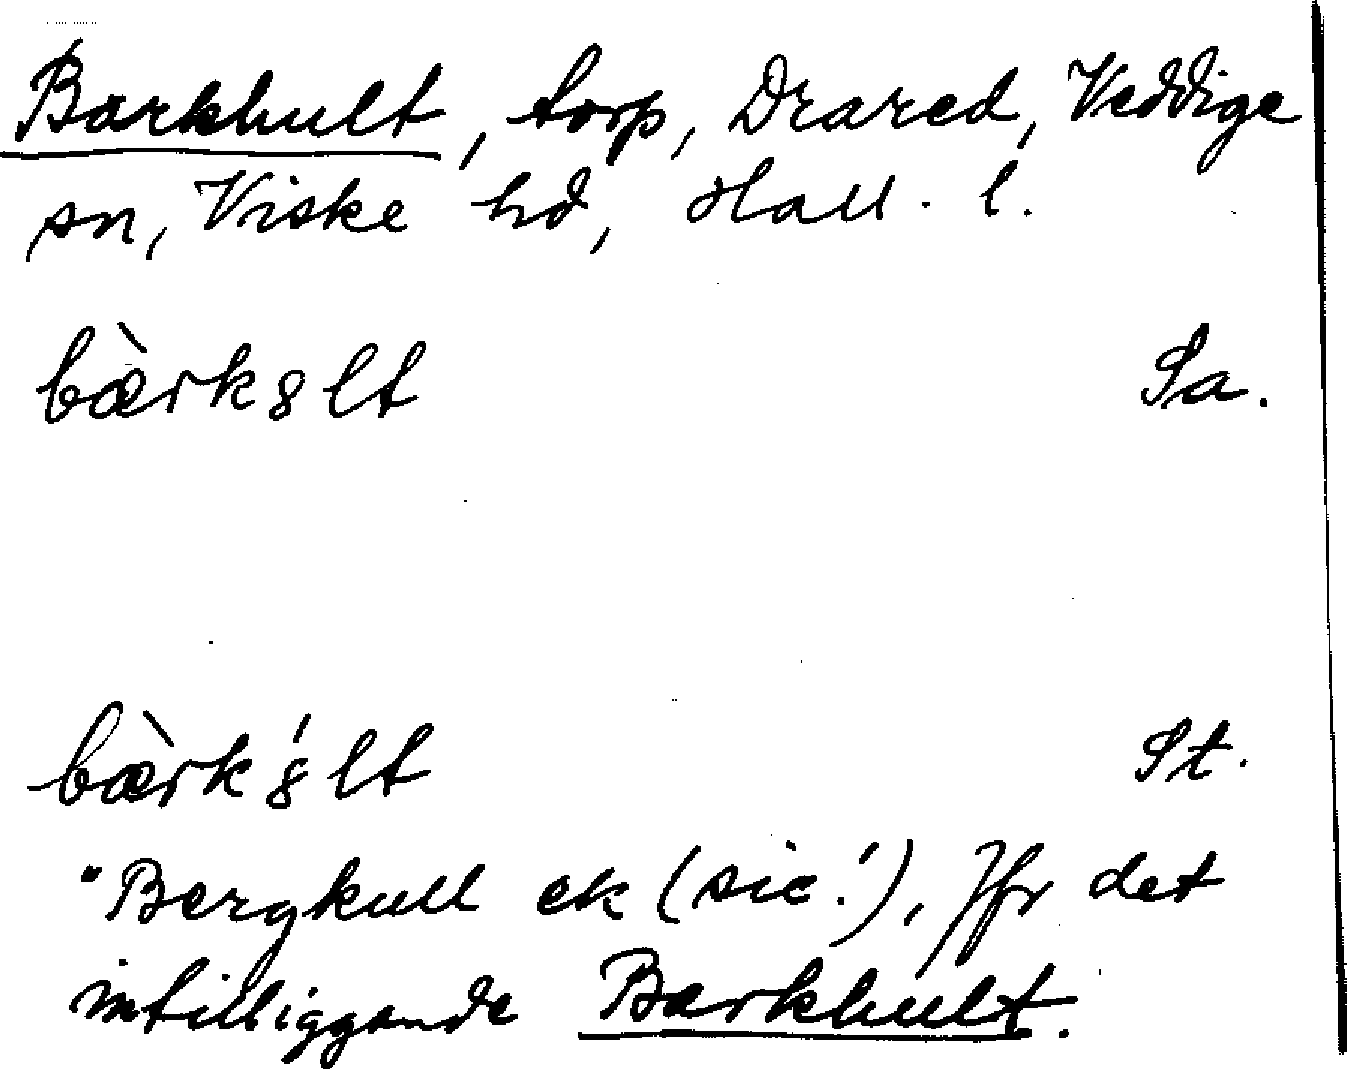 Barkhult, torp, Drared, Veddige
sn, Viske hd, Hall. l.
bæ̀rk8lt Sa.
bæ̀rk'8lt St.
"Bergkull ek (sic!), Jfr det
intilliggande Barkhult.